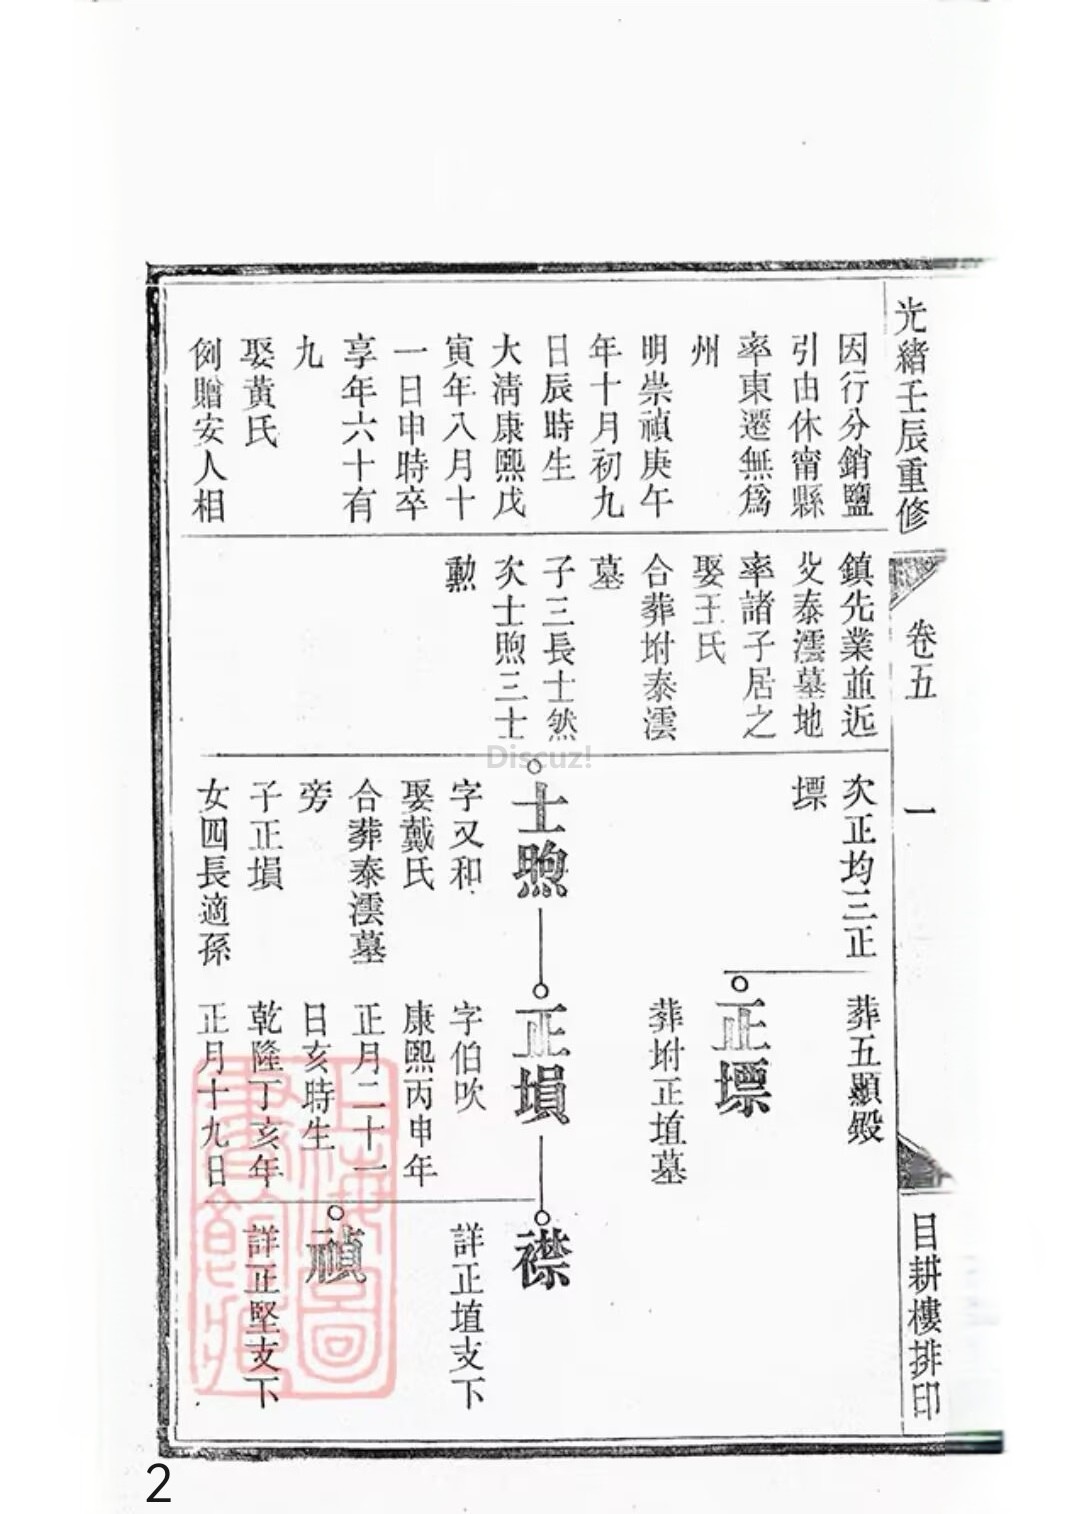 光緒壬辰重修
卷五
一
目耕樓排印
因行分銷鹽
引由休甯縣
率東遷無爲
州
明崇禎庚午
年十月初九
日辰時生
大清康熙戊
寅年八月十
一日申時卒
享年六十有
九
娶黃氏
例贈安人相
鎮先業並近
父泰澐墓地
率諸子居之
娶王氏
合葬坿泰澐
墓
子三長士然
次士煦三士
勳
次正均三正
墂
士煦
字又和
娶戴氏
合葬泰澐墓
旁
子正塤
女四長適孫
葬五顯殿
正墂
葬坿正埴墓
正塤
字伯吹
康熙丙申年
正月二十一
日亥時生
乾隆丁亥年
正月十九日
襟
詳正埴支下
禎
詳正堅支下
上海圖
書館藏
Discuz!
2